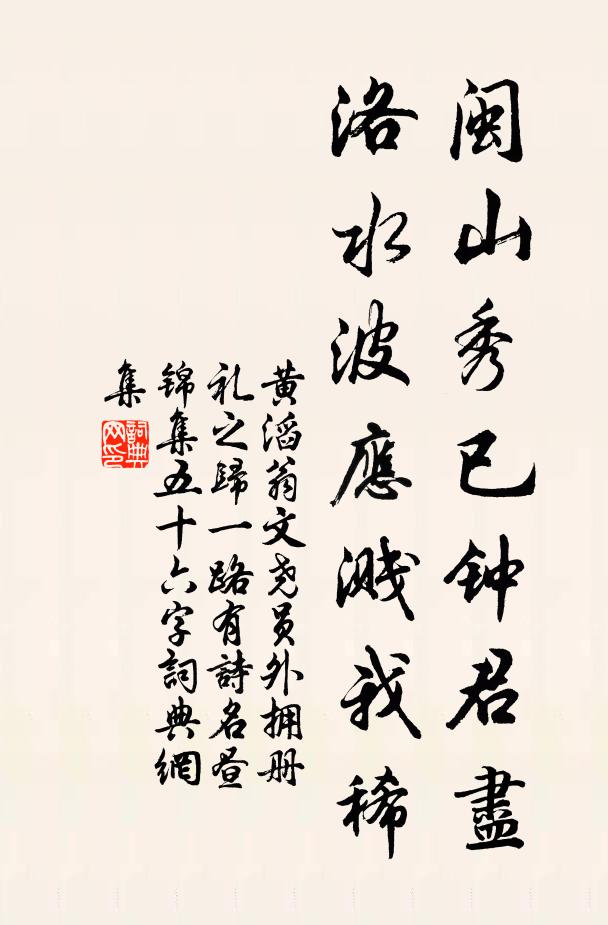 闽山秀已钟君盡
洛水波應溅我稀
黄滔翁文尧員外拥册
礼之歸一路有詩名昼
锦集五十六字詞典網
集
詞典
网印